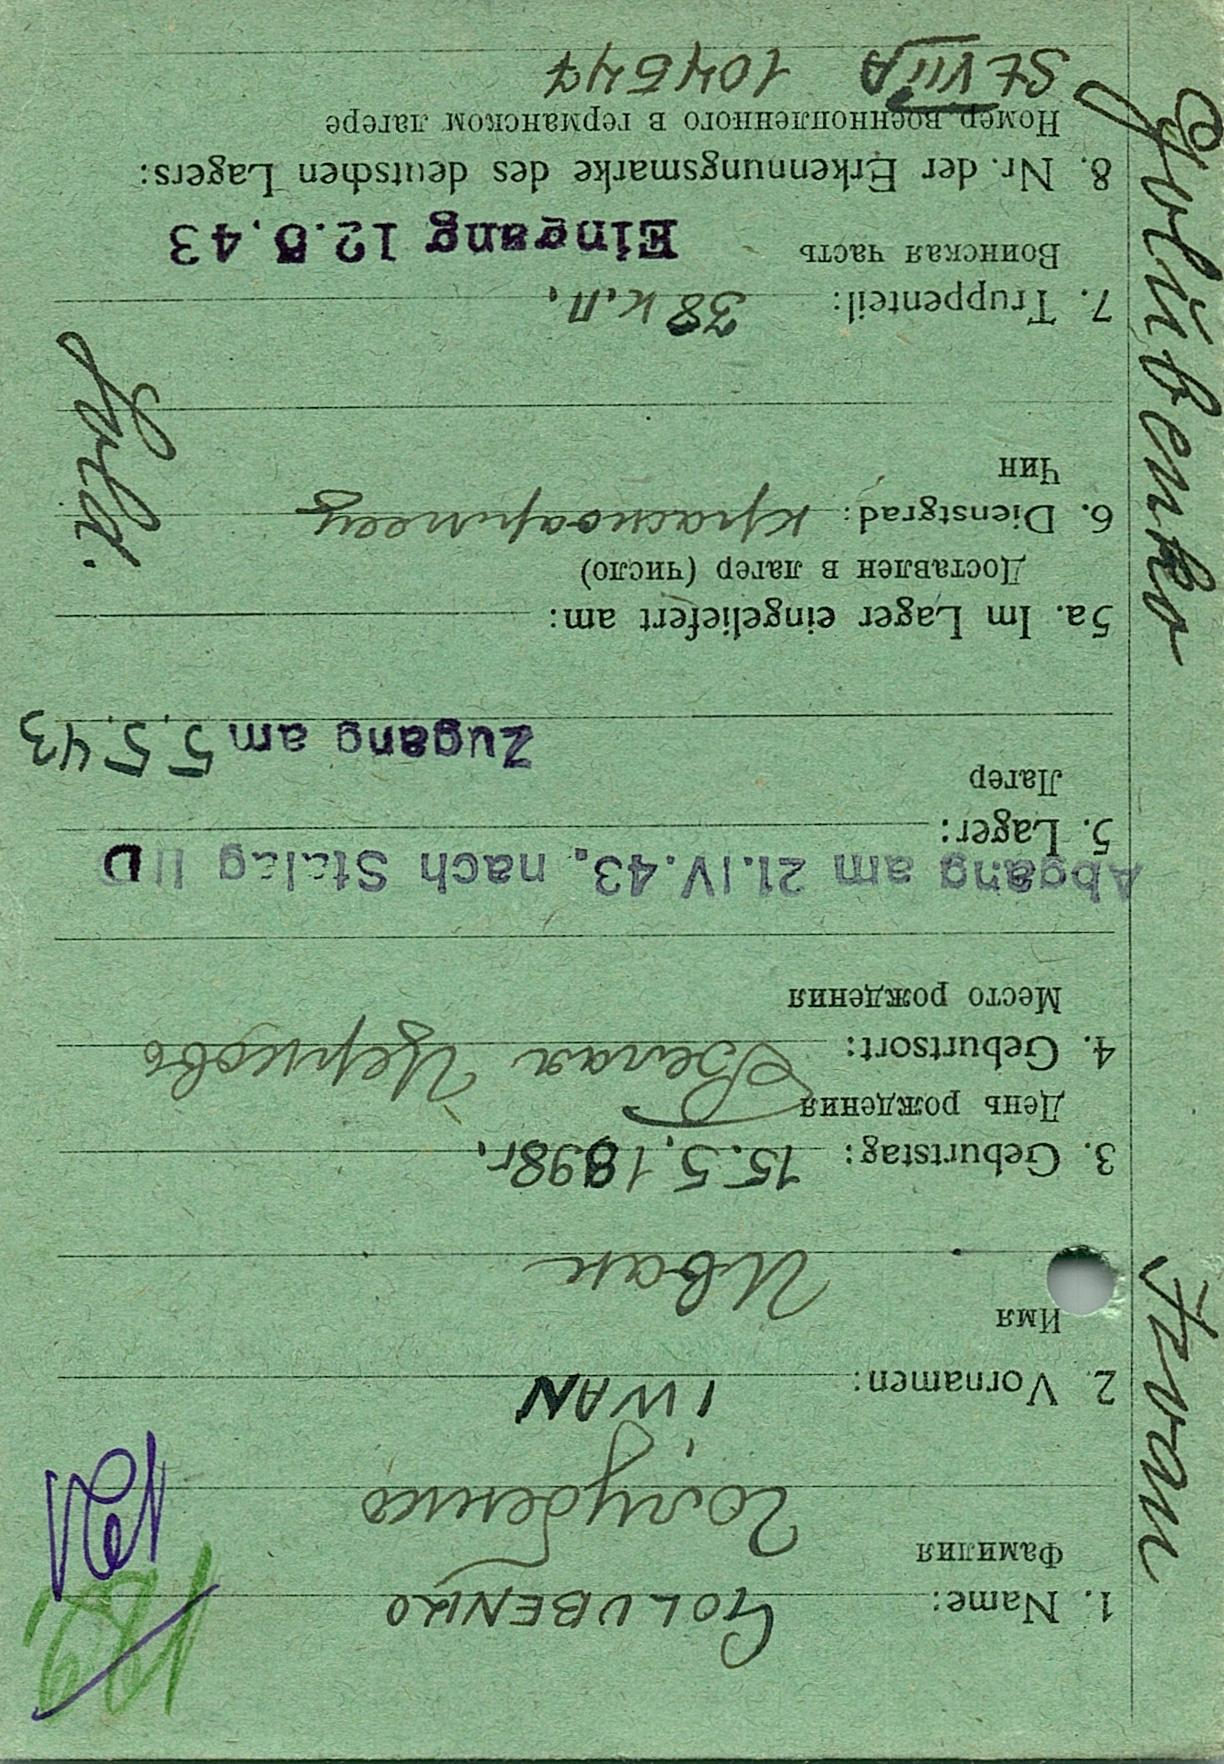 1. Name: GOLUBENKO
Фамилия
Голубенко
2. Vornamen: IWAN
Имя
Иван
3. Geburtstag: 15.5.1898г.
День рождения
4. Geburtsort: Белая Церковь
Место рождения
Abgang am 21.IV.43, nach Stalag II D
5. Lager:
Лагер
Zugang am 5.5.43
5a. Im Lager eingeliefert am:
Доставлен в лагер (число)
6. Dienstgrad: красноармеец
Чин
Sold.
7. Truppenteil: 38 к.п.
Воинская часть
Eingang 12.5.43
8. Nr. der Erkennungsmarke des deutschen Lagers:
Номер военнопленного в германском лагере
St VIII A 104547
Golubenko
Iwan